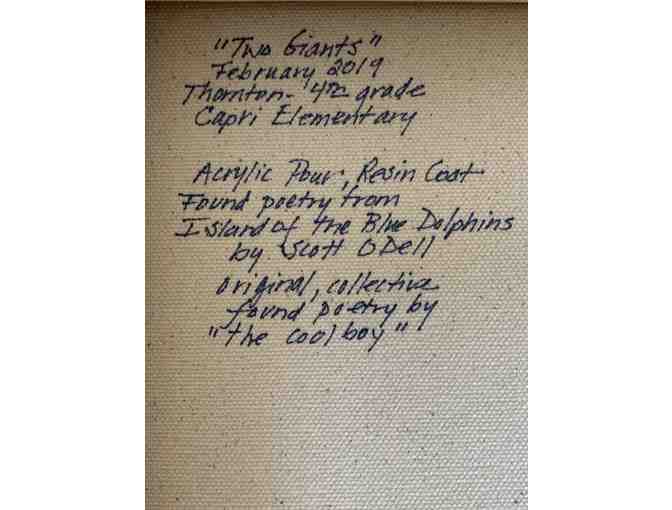 "Two Giants"
February 2019
Thornton- 4th grade
Capri Elementary
Acrylic Pour, Resin Coat
Found poetry from
Island of the Blue Dolphins
by Scott ODell
original, collective
found poetry by
"the cool boy"